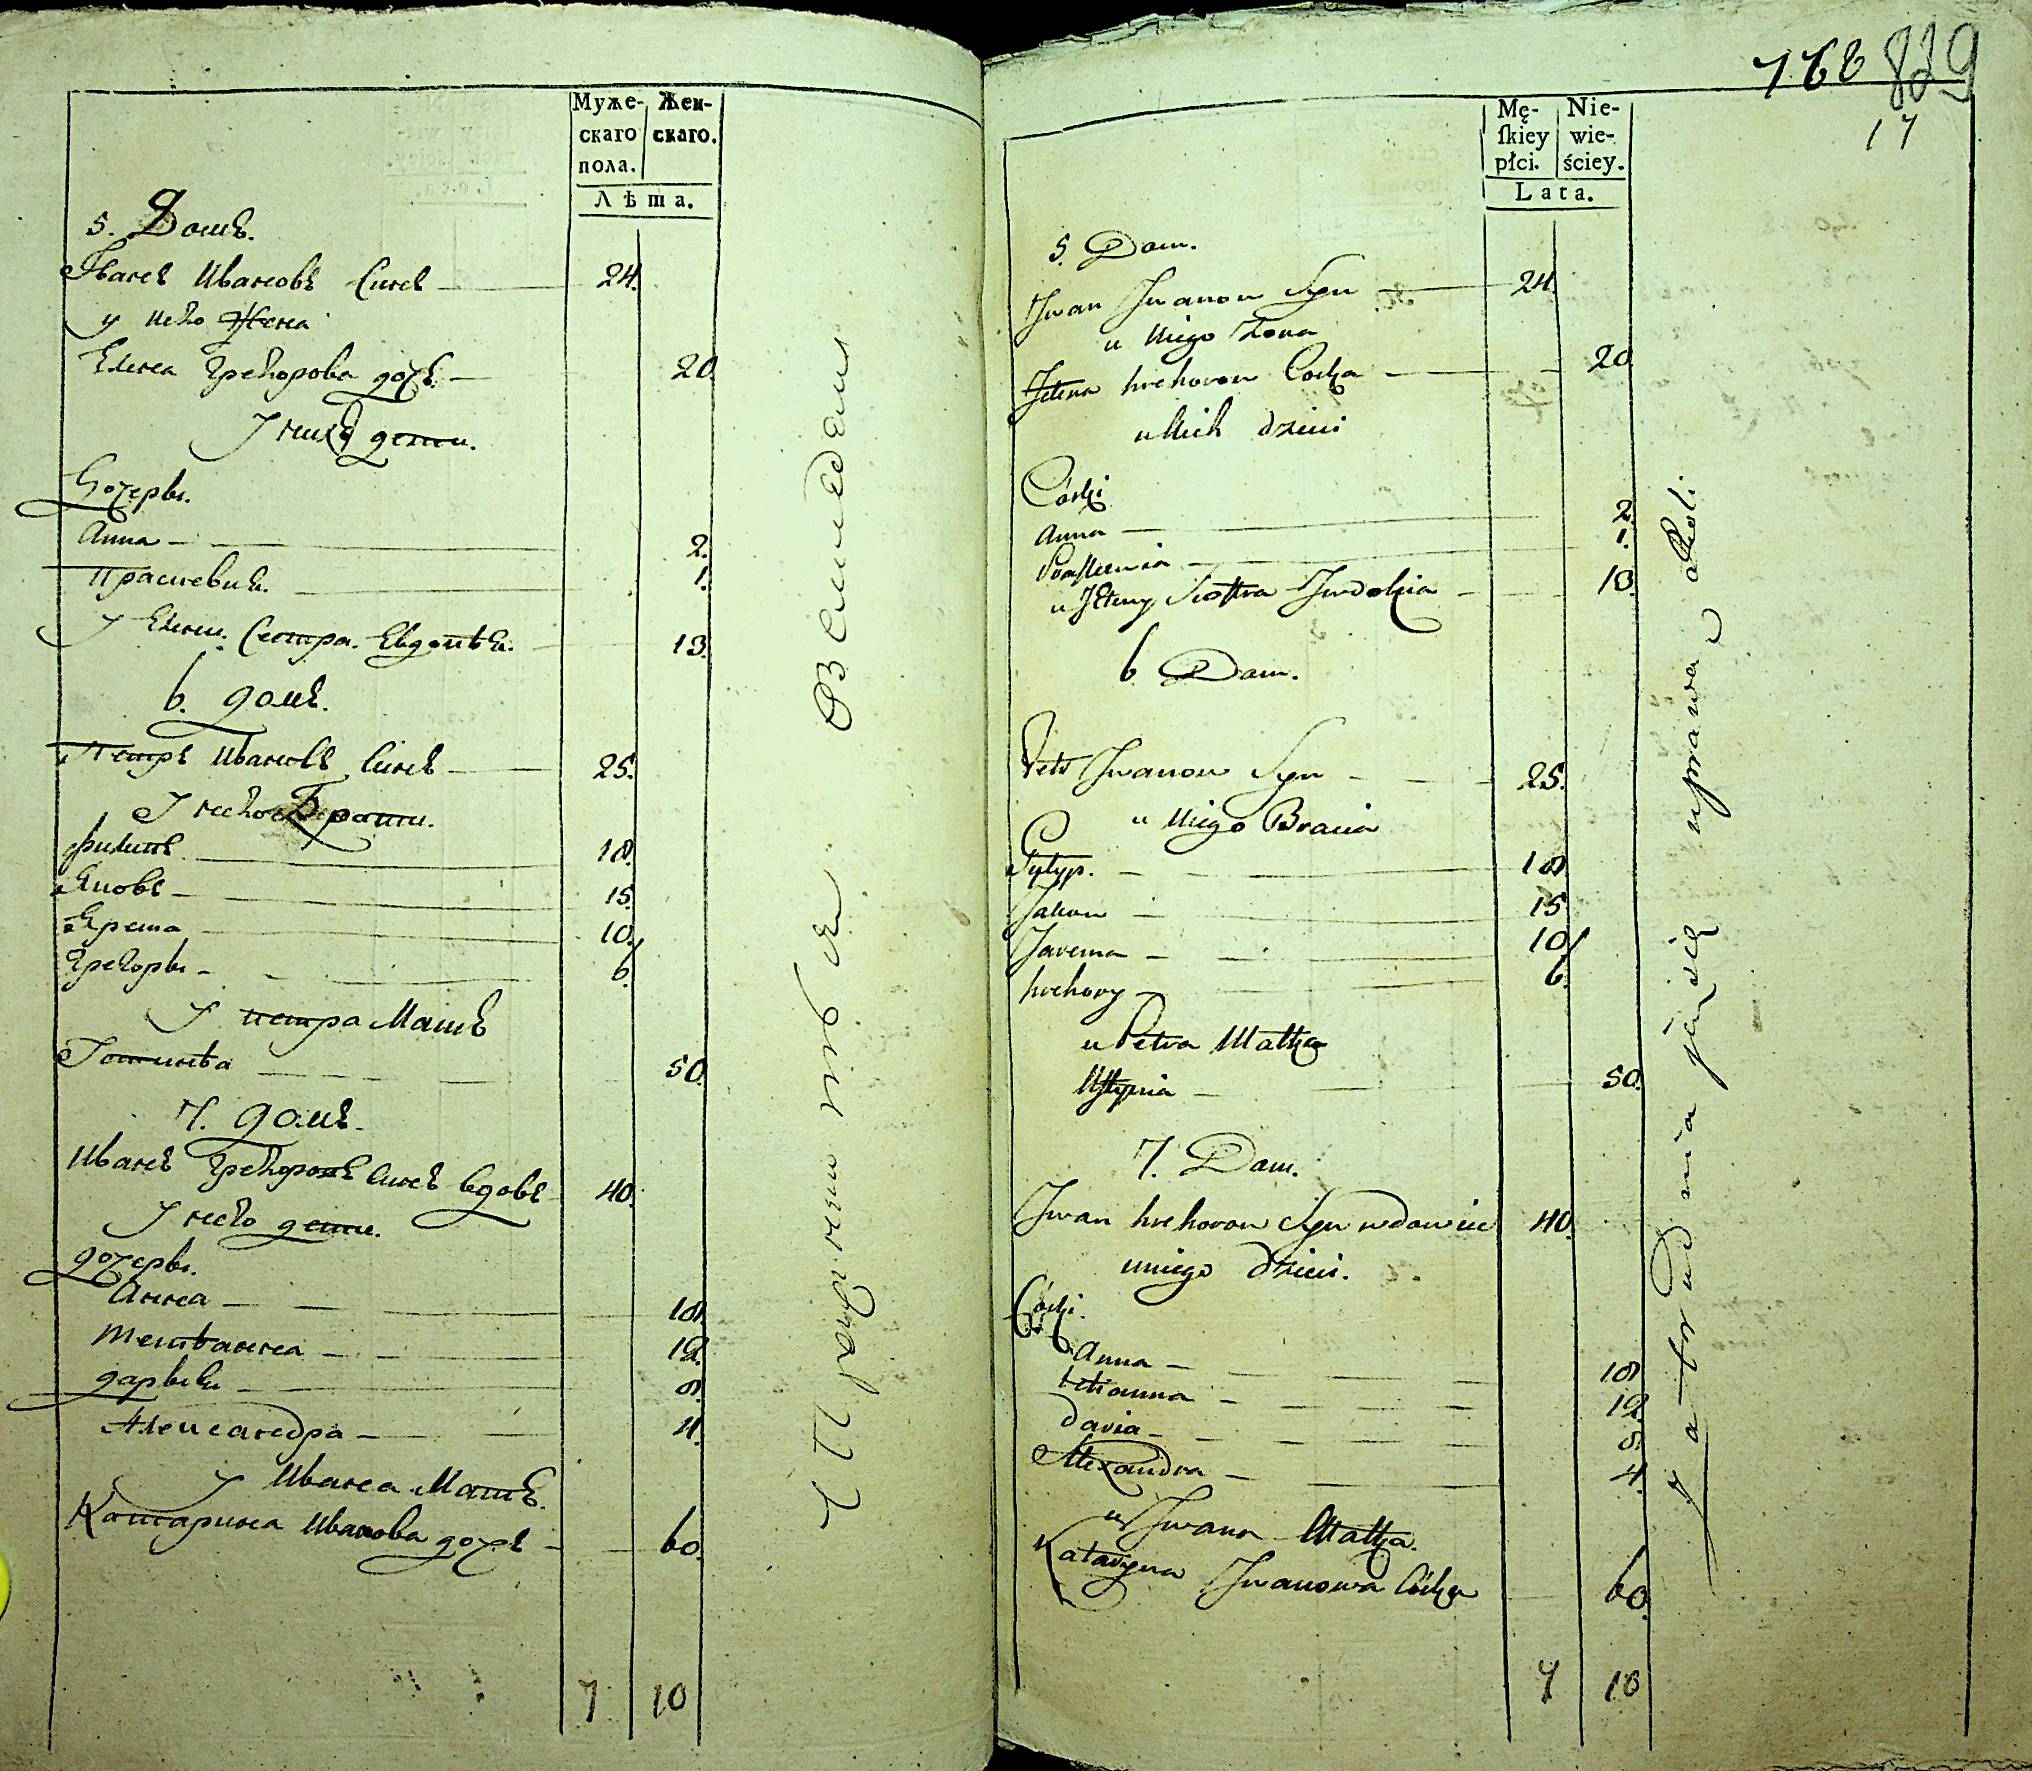 Муже- Жен-
скаго скаго.
пола.
Лѣта.
5. Домъ.
Іванъ Ивановъ Синъ 24.
у него Жена
Елена Григорова дочъ. 20.
У нихъ дети.
Дочеры.
Анна 2.
Прасцевия. 1.
У Елени. Сестра. Евдокѣя. 13.
6. домъ.
Петръ Ивановъ Синъ 25.
У него Брати.
Филипъ 18.
Яковъ 15.
Ярема 10.
Григоры 6.
У петра Матъ
50.
7. домъ.
Иванъ Григоровъ Синъ вдовъ 40.
У него дети.
дочеры.
Анна 18.
Тетванна 12.
дарыя 8.
Александра 4.
У Ивана Матъ.
Катарина Иванова дочъ 60.
7 10
Упражнятся В Земледели
768 839
17
Mę- Nie-
ſkiey wie-
płci. ściey.
Lata.
5. Dom.
Jwan Jwanow Syn 24.
u niego Żona
Jelena hrehorow Corka 20.
u Nich dzieci
Córki
Anna 2.
Praskewia 1.
u Jeleny Siostra Jwdokia 13.
6 Dom.
Petr Jwanow Syn 25.
u Niego Bracia
Pylyp. 18
Jakow 15
Jarema 10
hrehory 6.
u Petra Matka
Ustynia 50.
7. Dom.
Jwan hrehorow Syn wdowiec 40.
u niego dzieci.
Córki.
Anna 18
tetianna 12.
Daria 8.
Alexandra 4.
u Jwana Matka.
Kataryna Jwanowa Córka 60.
7 10
Zatrudnia ją się uprawą Roli